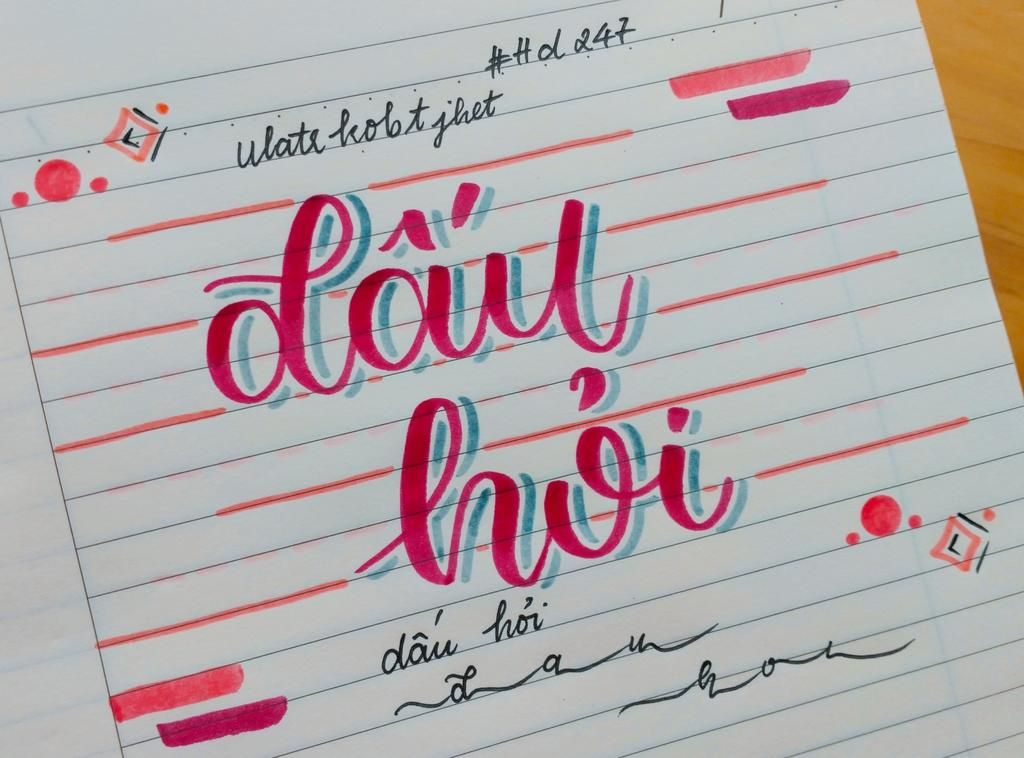 #Hd 247
Ulate kobt jhet
dấu
hỏi
dấu hỏi
dau hoi